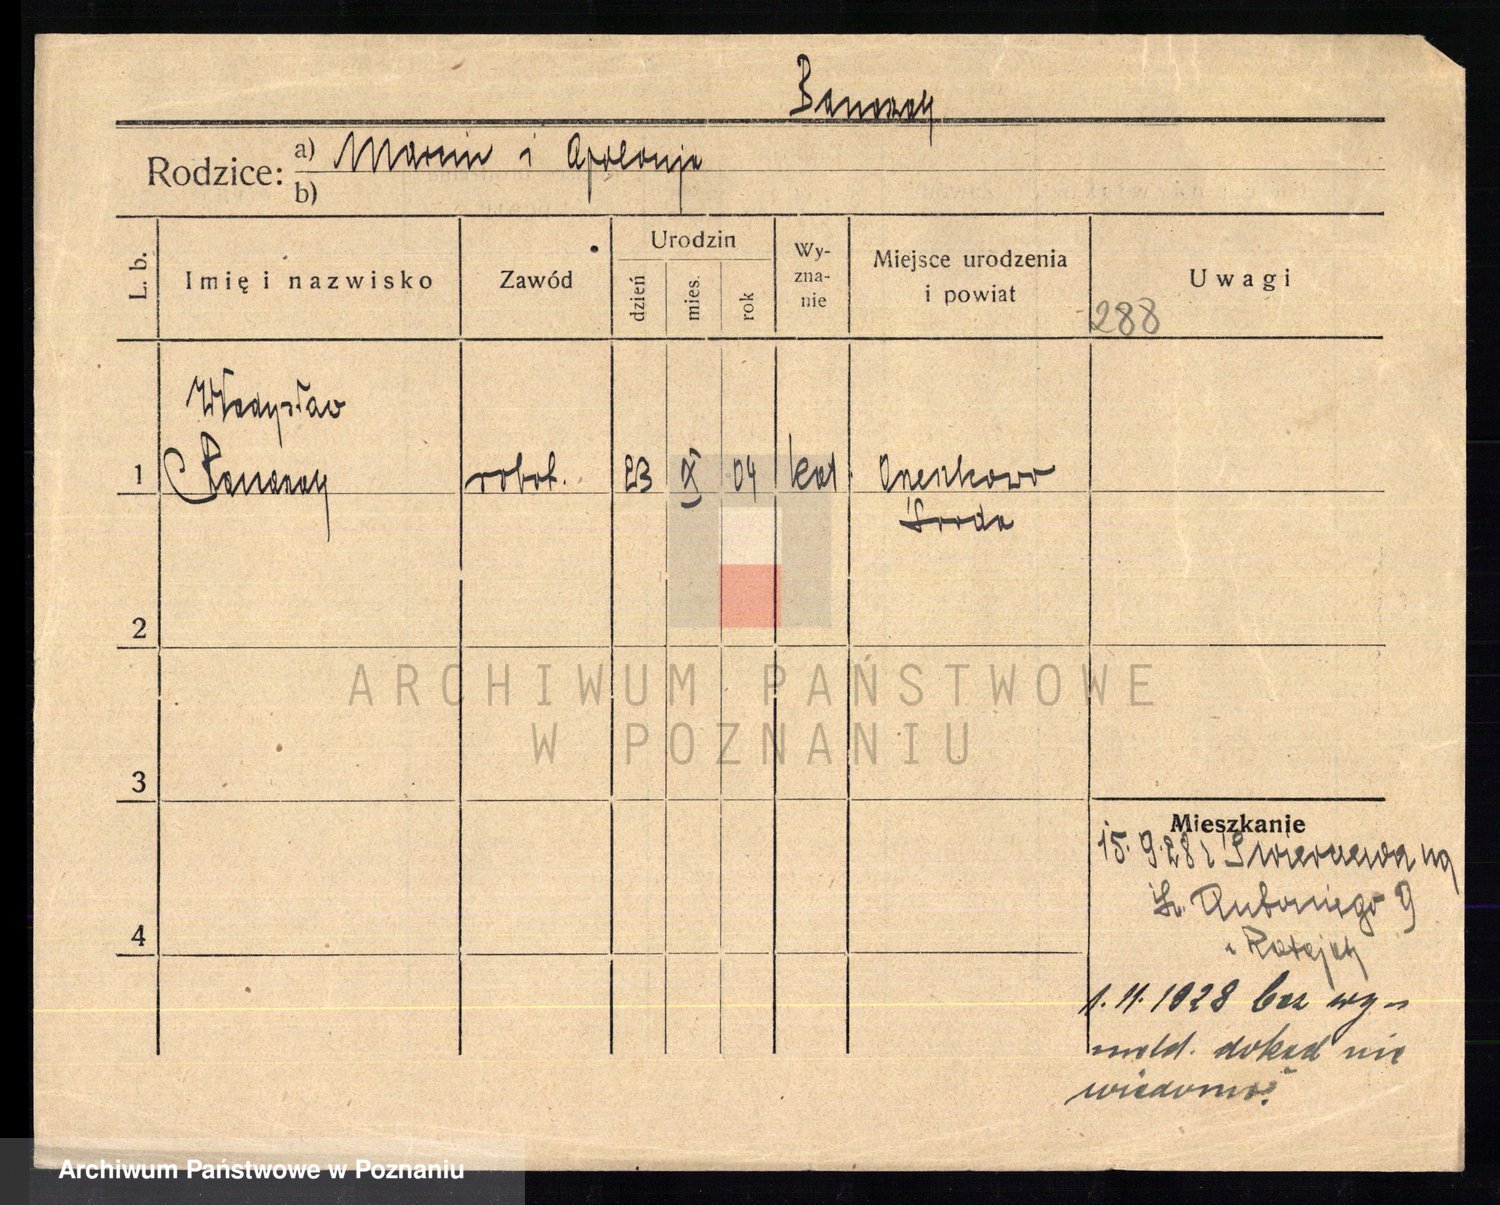 Banaszak
Rodzice: a) Marcin i Apolonja
b)
L. b. Imię i nazwisko Zawód Urodzin dzień mies. rok Wy-zna-nie Miejsce urodzenia i powiat Uwagi
288
Władysław
1 robot. 23 X 04 kat.
Środa
2
ARCHIWUM PAŃSTWOWE
W POZNANIU
3
Mieszkanie
15. 9. 28 z
9
4 Rataje
1. 11. 1928 bez wy-
meld. dokąd nie
wiadomo.
Archiwum Państwowe w Poznaniu